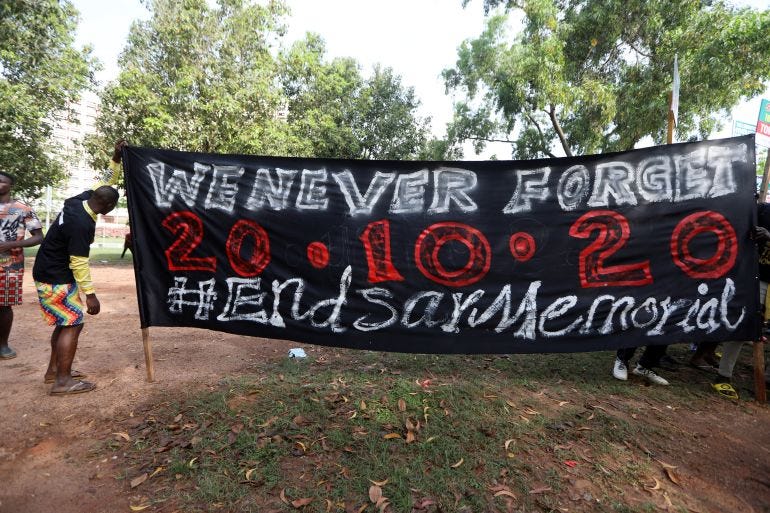 WE NEVER FORGET
20·10·20
#EndSarsMemorial